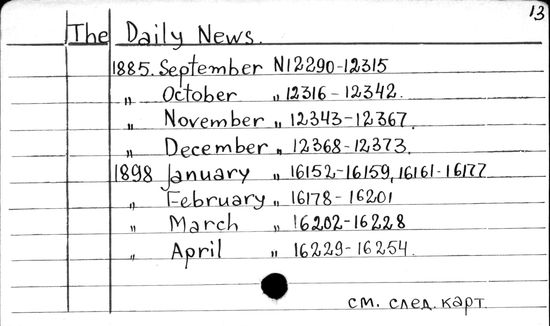 13
The Daily News.
1885. September N12290-12315
„ October „ 12316-12342.
„ November „ 12343-12367.
„ December „ 12368-12373.
1898 January „ 16152-16159, 16161-16177
„ February „ 16178-16201
„ March „ 16202-16228
„ April „ 16229-16254.
см. след. карт.